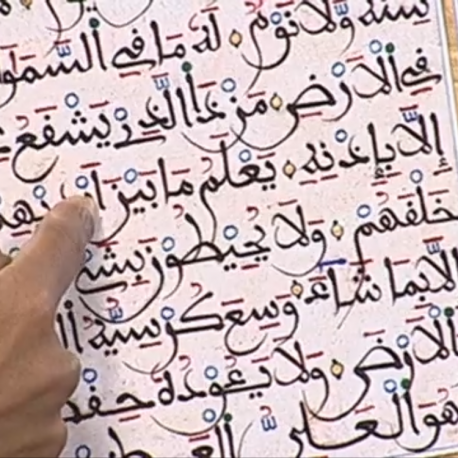 سِنَةٌ وَلَا نَوْمٌ لَهُ مَا فِي السَّمَٰوَ
فِي الَارْضِ مَن ذَا الَّذِي يَشْفَعُ
إِلَّا بِإِذْنِهِ يَعْلَمُ مَا بَيْنَ أَ
خَلْفَهُمْ وَلَا يُحِيطُونَ بِشَيْ
إِلَّا بِمَا شَاءَ وَسِعَ كُرْسِيُّهُ ال
الَارْضَ وَلَا يَـُٔودُهُ حِفْظُ
هُوَ الْعَلِيُّ الْعَظِيمُ